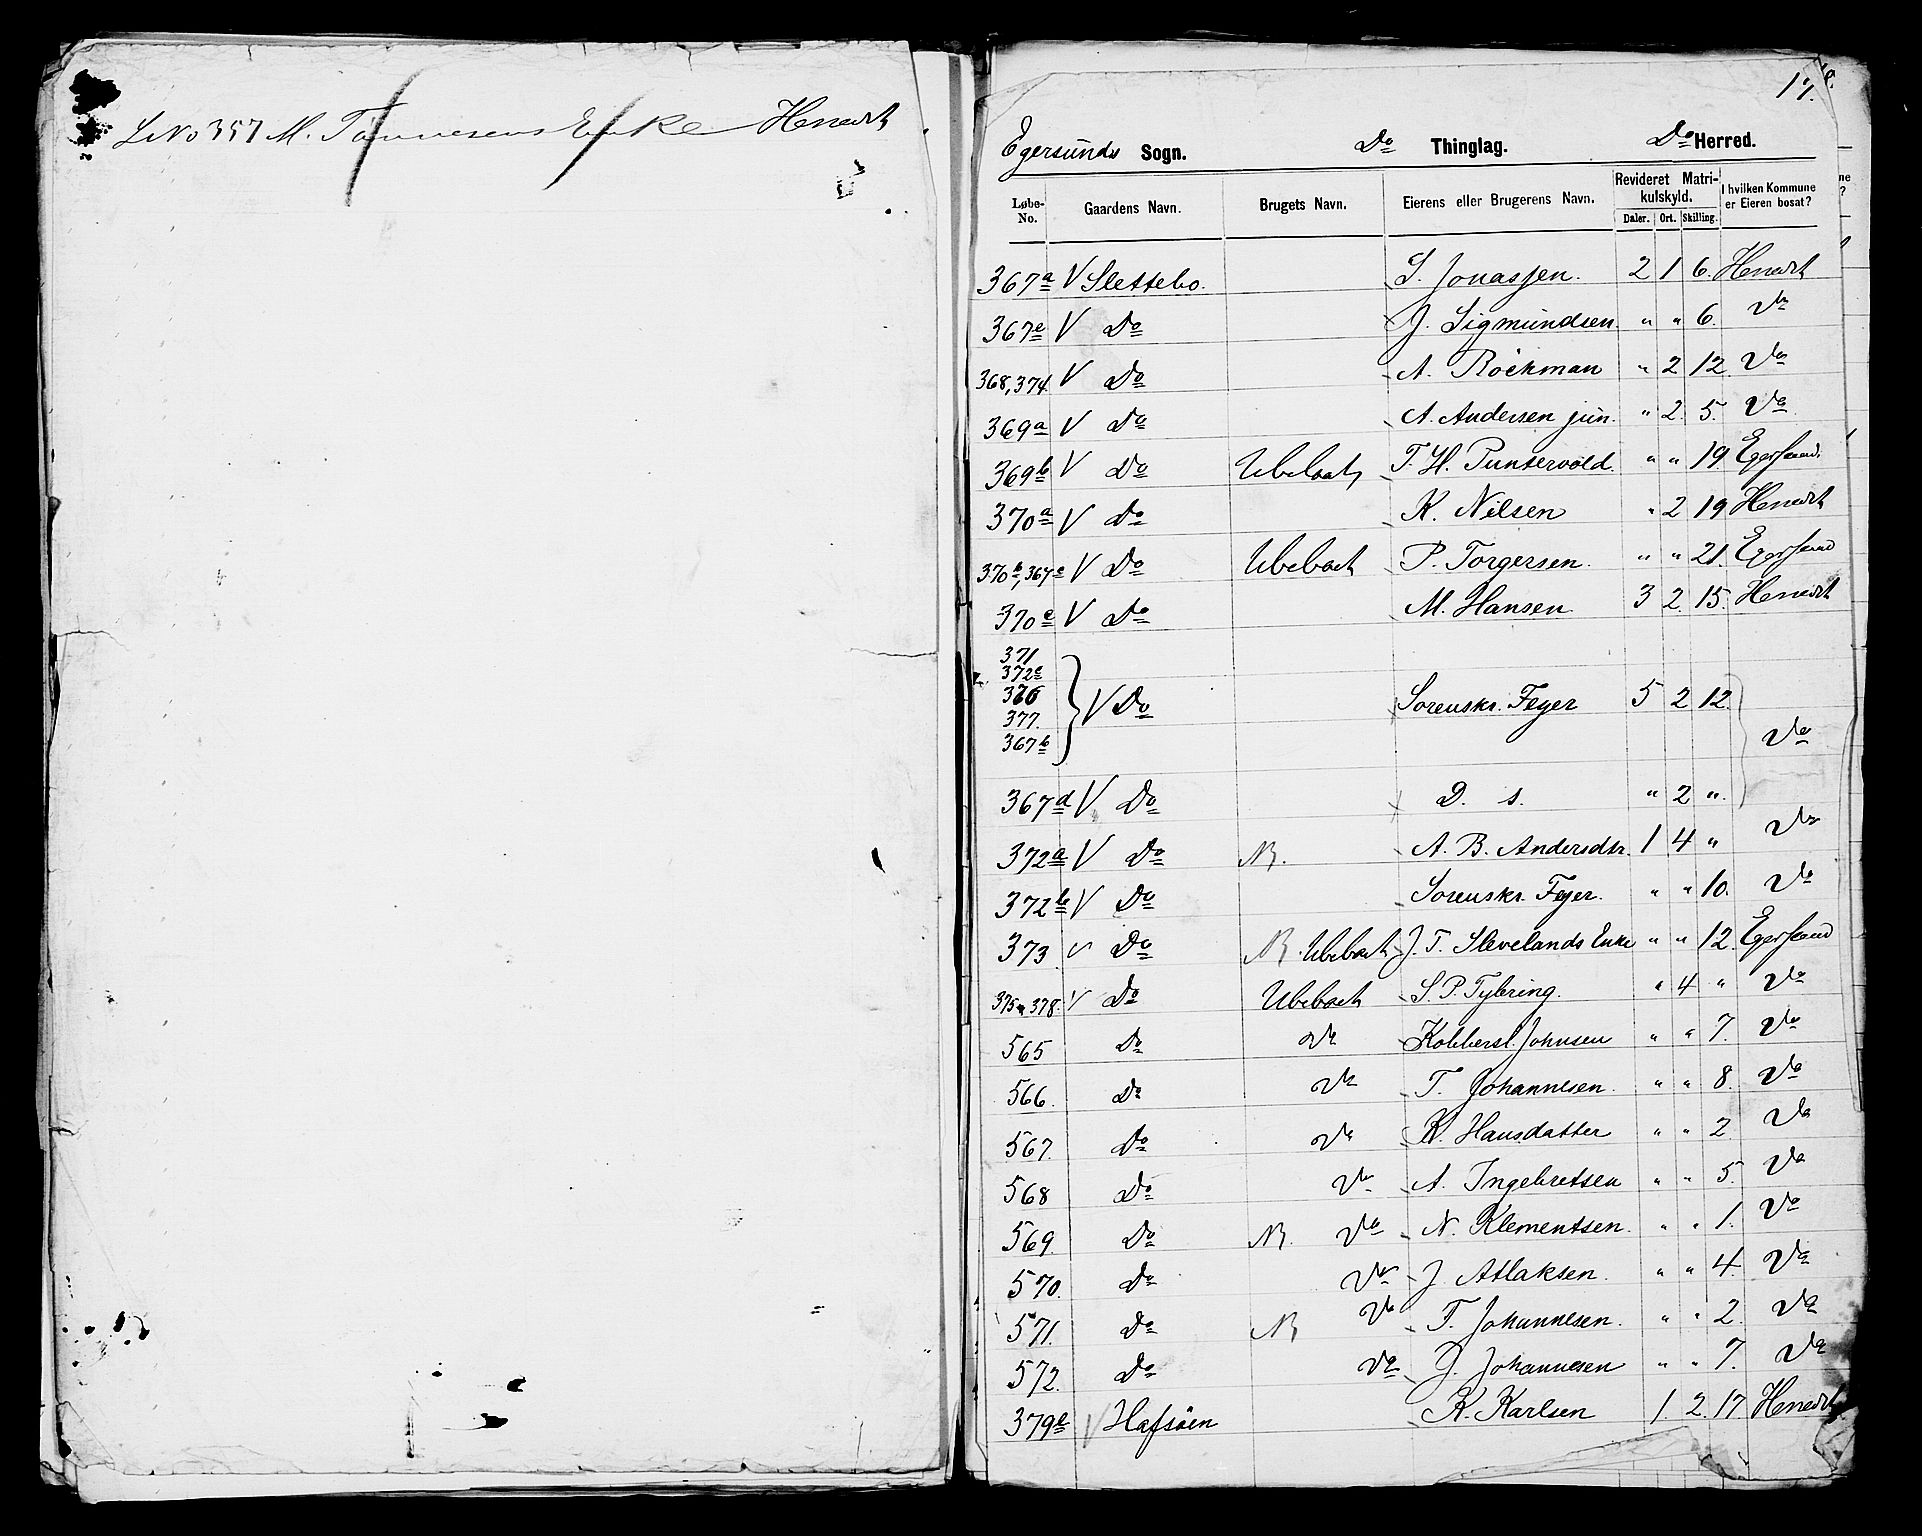 LNo 357 M. Tønnesens Enke Heredt
17.
Egersunds Sogn. Do Thinglag. Do Herred.
Løbe-No. Gaardens Navn. Brugets Navn. Eierens eller Brugerens Navn. Revideret Matrikulskyld. Daler. Ort. Skilling. I hvilken Kommune er Eieren bosat?
367a V Slettebo. S. Jonassen. 2 1 6. Heredt
367e V Do J. Sigmundsen. " " 6. Do
368, 374 V Do A. Böckman " 2 12 Do
369a V Do A. Andersen jun. " 2. 5. Do
369b V Do Ubeboet T. H. Puntervold. " " 19 Egersund.
370a V Do K. Nilsen " 2 19 Heredt
370b, 367c V Do Ubeboet P. Torgersen. " " 21. Egersund
370c V Do M. Hansen 3 2. 15. Heredt
371
372c
376
377.
367b
} V Do Sorenskr. Feyer 5 2 12 Do
367d V Do D. s. " 2 ".
372a V Do N. A. B. Andersdtr. 1 4 " Do
372b V Do Sorenskr. Feyer. " " 10. Do
373 V Do N. Ubeboet J. T. Slevelands Enke " " 12. Egersund
375 378. V Do Ubeboet S. P. Tybring. " 4 " Do
565 Do Do Kobbersl. Johnsen " " 7. Do
566. Do Do T. Johannesen. " " 8. Do
567. Do Do K. Hansdatter " " 2 Do
568 Do Do A. Ingebretsen " " 5. Do
569. Do N. Do N. Klementsen. " " 1. Do
570. Do Do J. Aslaksen. " " 4. Do
571. Do N. Do T. Johannesen. " " 2. Do
572. Do Do J. Johannesen " " 7. Do
379e V Hafsöen K. Karlsen 1. 2. 17 Heredt